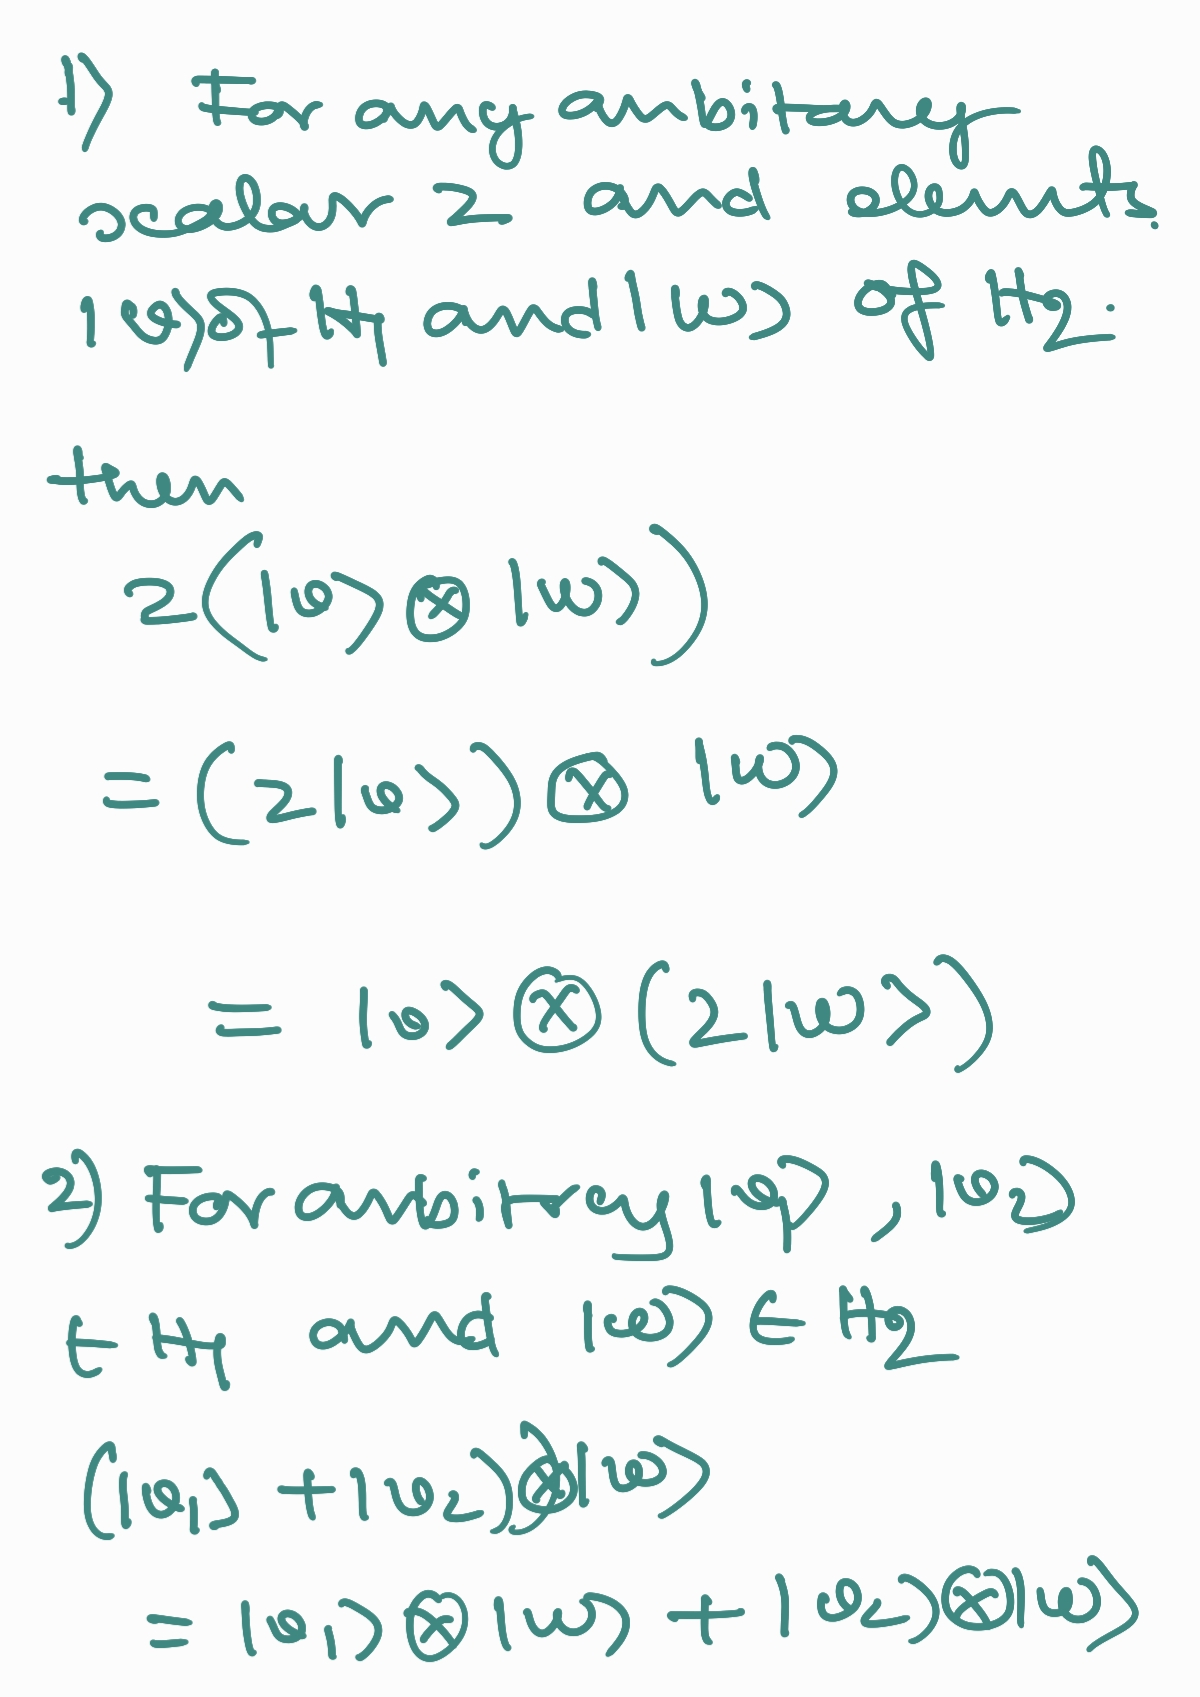 1) For any arbitary
scalar z and elemts.
|v> of H1 and |w> of H2.
then
z(|v> ⊗ |w>)
= (z|v>) ⊗ |w>
= |v> ⊗ (z|w>)
2) For arbitrey |v1>, |v2>
∈ H1 and |w> ∈ H2
(|v1> + |v2>) ⊗ |w>
= |v1> ⊗ |w> + |v2> ⊗ |w>